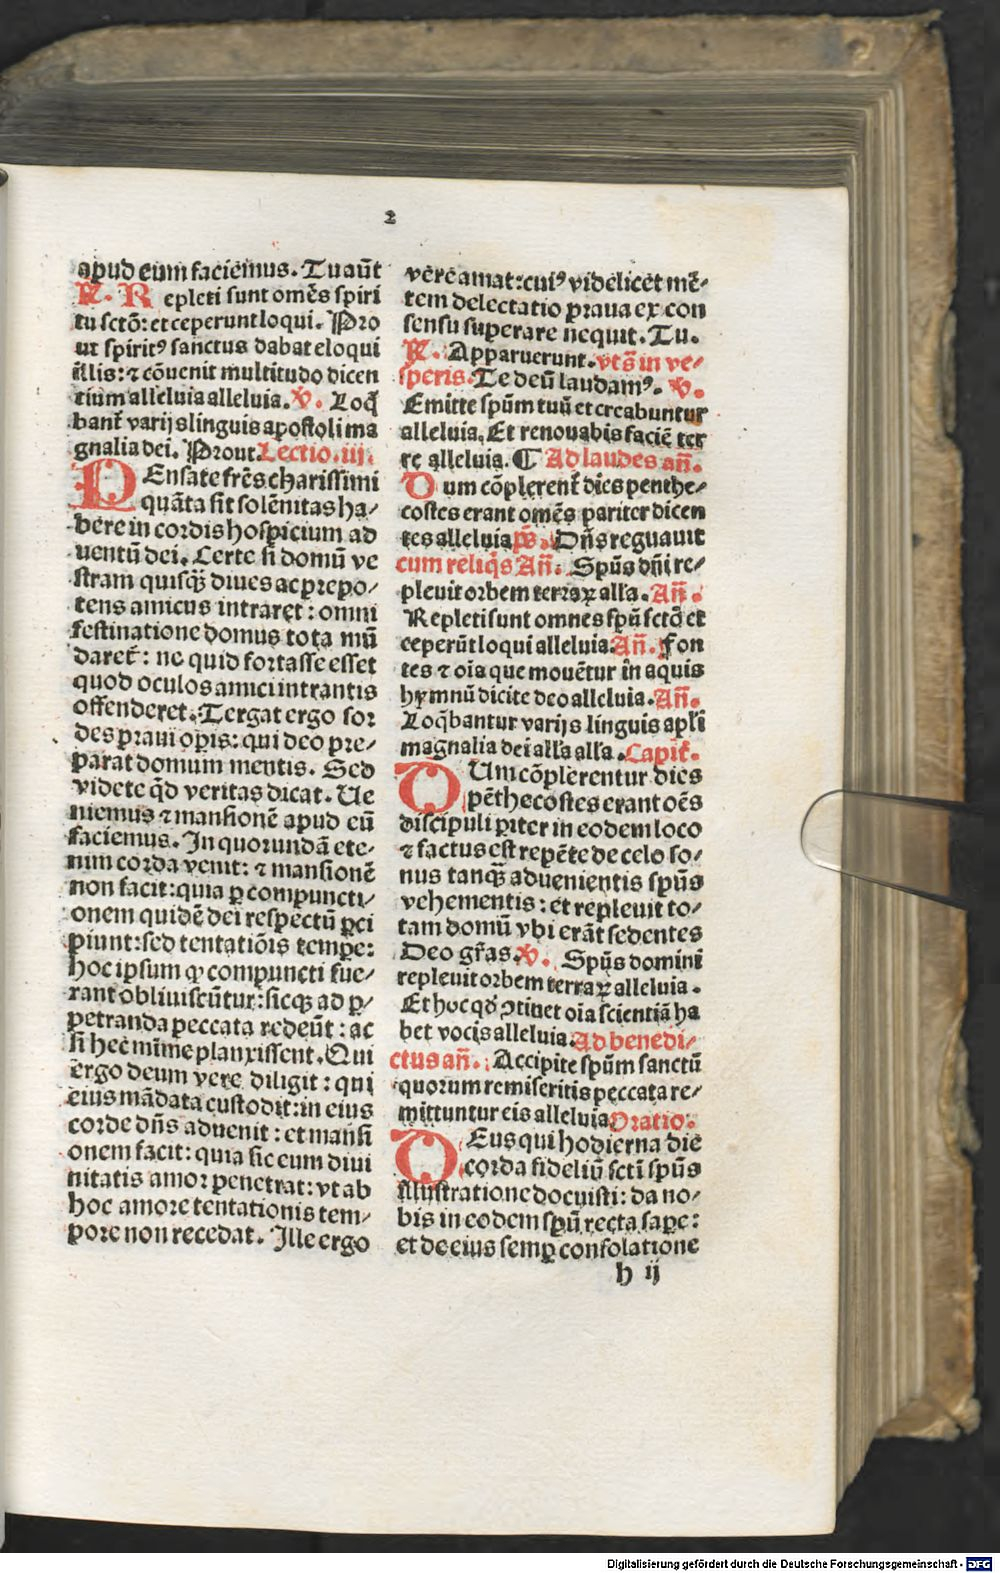 2
apud eum faciemus. Tu aūt
℟. Repleti sunt omēs spiri
tu sctō: et ceperunt loqui. Pro
ut spiritꝰ sanctus dabat eloqui
illis: ⁊ cōuenit multitudo dicen
tium alleluia alleluia. ℣. Loq̄
bant᷑ varijs linguis apostoli ma
gnalia dei. Prout. Lectio. iij.
PEnsate frēs charissimi
quāta sit solēnitas ha⸗
bere in cordis hospicium ad
uentū dei. Certe si domū ve
stram quisqꝫ diues ac prepo⸗
tens amicus intraret: omni
festinatione domus tota mū
daret᷑: ne quid fortasse esset
quod oculos amici intrantis
offenderet. Tergat ergo sor
des praui opis: qui deo pre⸗
parat domum mentis. Sed
videte qd̄ veritas dicat. Ue
niemus ⁊ mansionē apud eū
faciemus. In quorundā ete⸗
nim corda venit: ⁊ mansionē
non facit: quia ꝑ compuncti⸗
onem quidē dei respectū ꝑci
piunt: sed tentatiōis tempe:
hoc ipsum ꝙ compuncti fue⸗
rant obliuiscūtur: sicqꝫ ad ꝑ⸗
petranda peccata redeūt: ac
si hec mīme planxissent. Qui
ergo deum vere diligit: qui
eius mādata custodit: in eius
corde dn̄s aduenit: et mansi
onem facit: quia sic eum diui
nitatis amor penetrat: vt ab
hoc amore tentationis tem⸗
pore non recedat. Ille ergo
vere amat: cuiꝰ videlicet mē⸗
tem delectatio praua ex con
sensu superare nequit. Tu.
℟. Apparuerunt. vts̄ in ve⸗
speris. Te deū laudamꝰ. ℣.
Emitte spūm tuū et creabuntur
alleluia. Et renouabis faciē ter
re alleluia. ¶ Ad laudes an̄.
Dum cōplerent᷑ dies penthe⸗
costes erant omēs pariter dicen
tes alleluia p̄s. Dn̄s regnauit
cum reliq̄s An̄. Spūs dn̄i re⸗
pleuit orbem terraꝝ alła. An̄.
Repleti sunt omnes spū sctō et
ceperūt loqui alleluia. An̄. Fon
tes ⁊ oīa que mouētur in aquis
hymnū dicite deo alleluia. An̄.
Loq̄bantur varijs linguis apłi
magnalia dei alła alła. Capit᷑.
DUm cōplerentur dies
pēthecostes erant oēs
discipuli ꝑiter in eodem loco
⁊ factus est repēte de celo so⸗
nus tanqꝫ aduenientis spūs
vehementis: et repleuit to⸗
tam domū vbi erāt sedentes
Deo gr̄as. ℣. Spūs domini
repleuit orbem terraꝝ alleluia.
Et hoc qd̄ ꝯtinet oīa scientiā ha
bet vocis alleluia. Ad benedi⸗
ctus an̄. Accipite spūm sanctū
quorum remiseritis peccata re⸗
mittuntur eis alleluia Oratio.
DEus qui hodierna die
corda fideliū scti spūs
illustratione docuisti: da no⸗
bis in eodem spū recta sape:
et de eius semꝑ consolatione
h ij
Digitalisierung gefördert durch die Deutsche Forschungsgemeinschaft - DFG